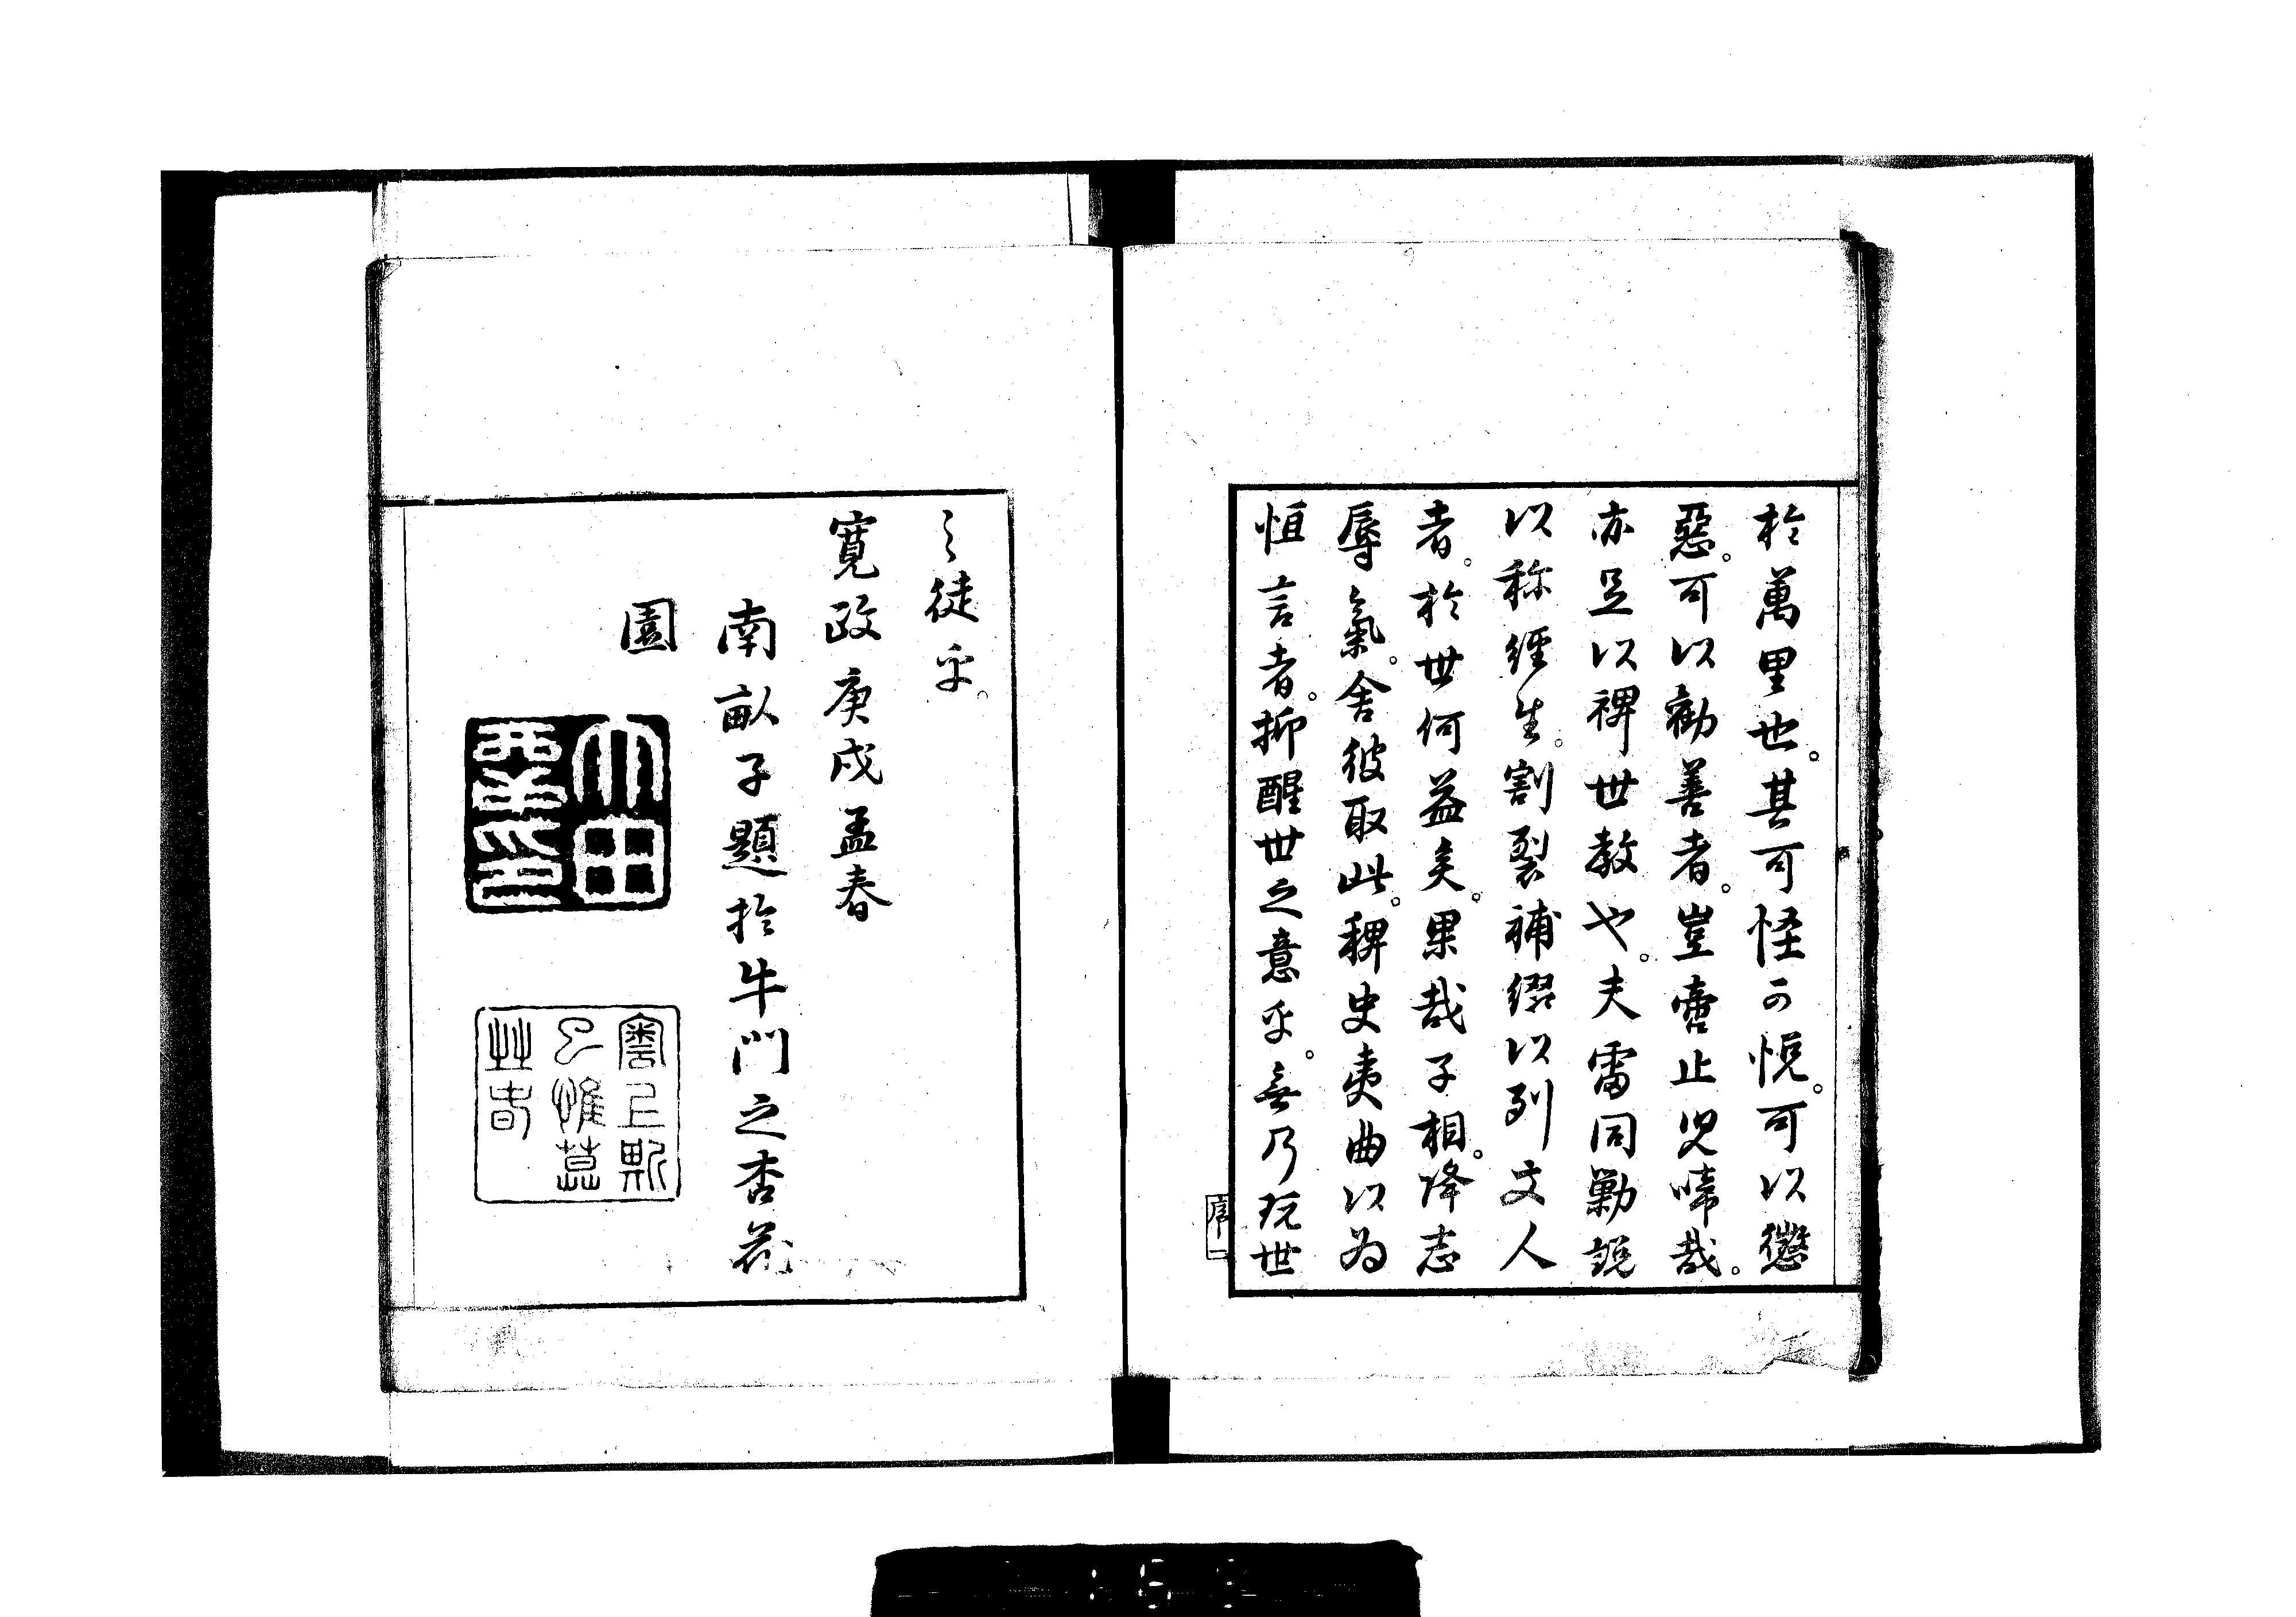 於萬里也。其可怪可悅。可以懲
惡。可以勸善者。豈啻止兒啼哉。
亦足以裨世教也。夫雷同勦說
以称經生。割裂補綴以列文人
者。於世何益矣。果哉子相。降志
辱氣。舍彼取此。稗史夷曲以為
恒言者。抑醒世之意乎。無乃玩世
序二
之徒乎。
寛政庚戌孟春
南畝子題於牛門之杏花
園